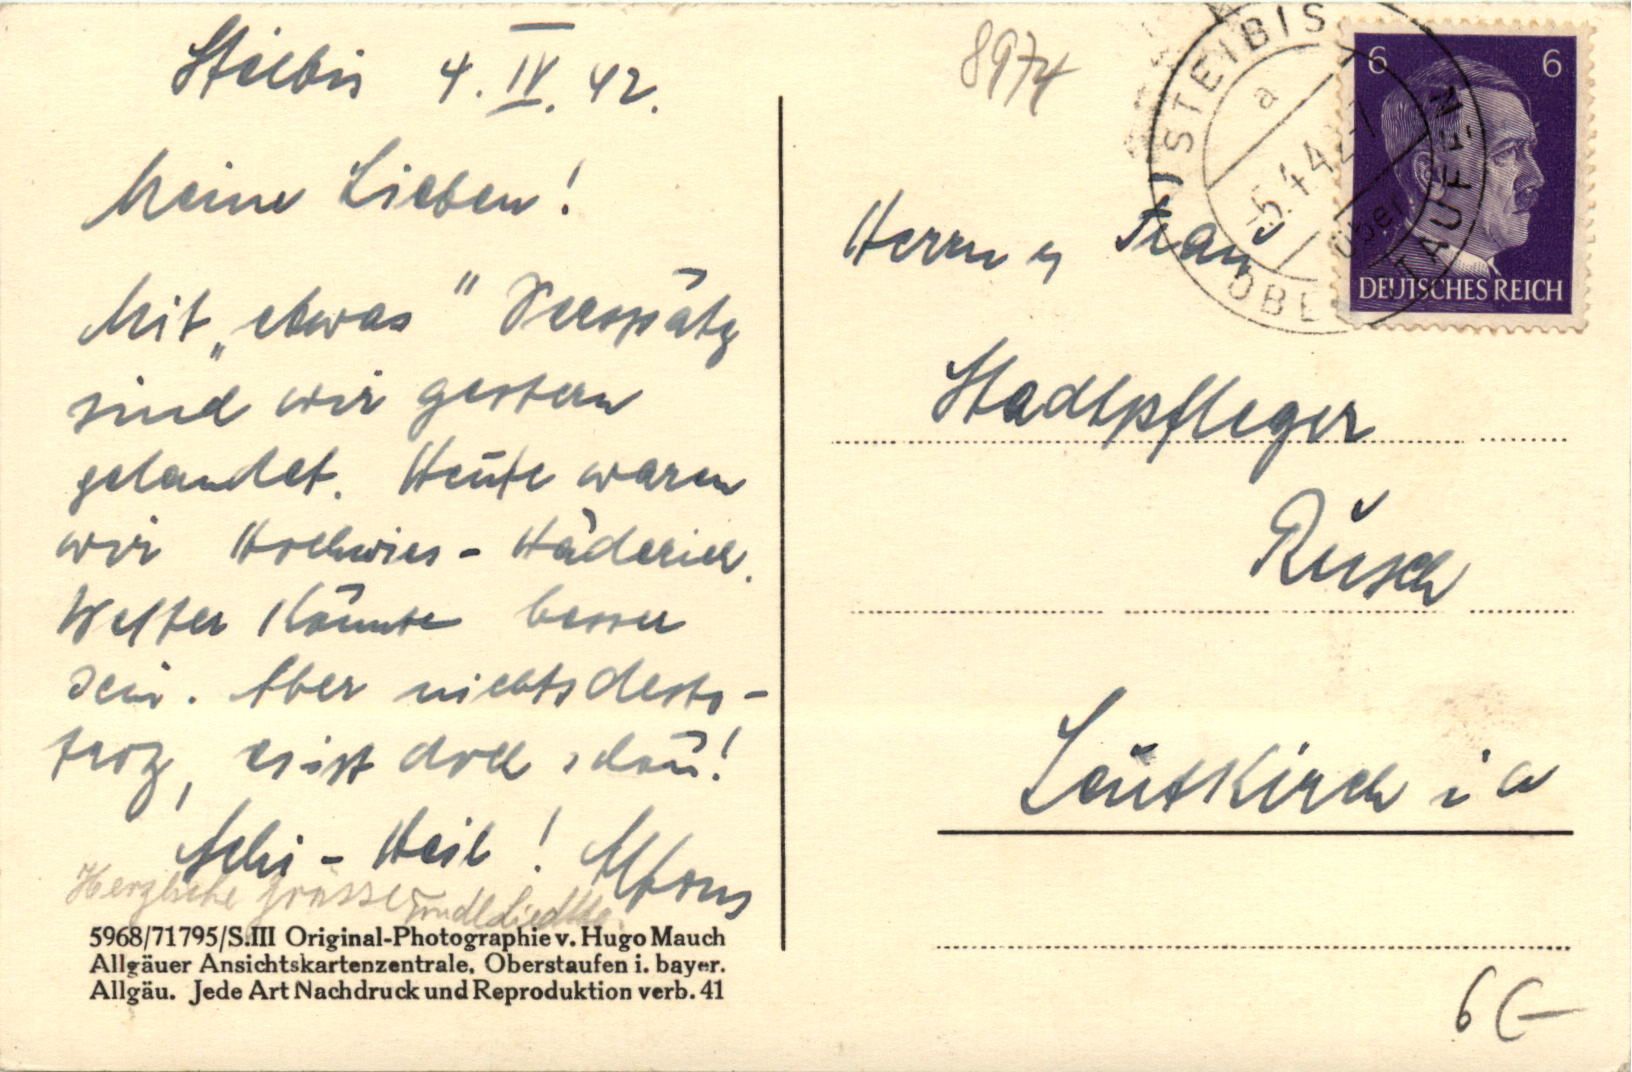 Steibis 4. IV. 42.
Meine Lieben!
Mit „etwas" Verspätg
sind wir gestern
gelandet. Heute waren
wir Hochwies - Häderich.
Wetter könnte besser
sein. Aber nichtsdesto-
troz, es ist doch schön!
Schi - Heil! Alfons
Herzliche Grüsse
5968/71795/S.III Original-Photographie v. Hugo Mauch
Allgäuer Ansichtskartenzentrale, Oberstaufen i. bayer.
Allgäu. Jede Art Nachdruck und Reproduktion verb. 41
8974
STEIBIS
a
-5.4.42-7
über
OBERSTAUFEN
6 6
DEUTSCHES REICH
Herrn u Frau
Stadtpfleger
Rusch
Leutkirch i a
6 €-